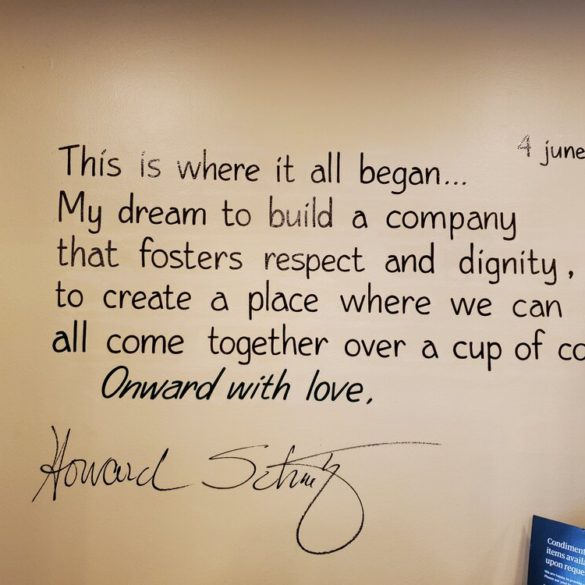 4 june
This is where it all began...
My dream to build a company
that fosters respect and dignity,
to create a place where we can
all come together over a cup of co
Onward with love,
Howard Schultz
Condiment
items avail
upon reque